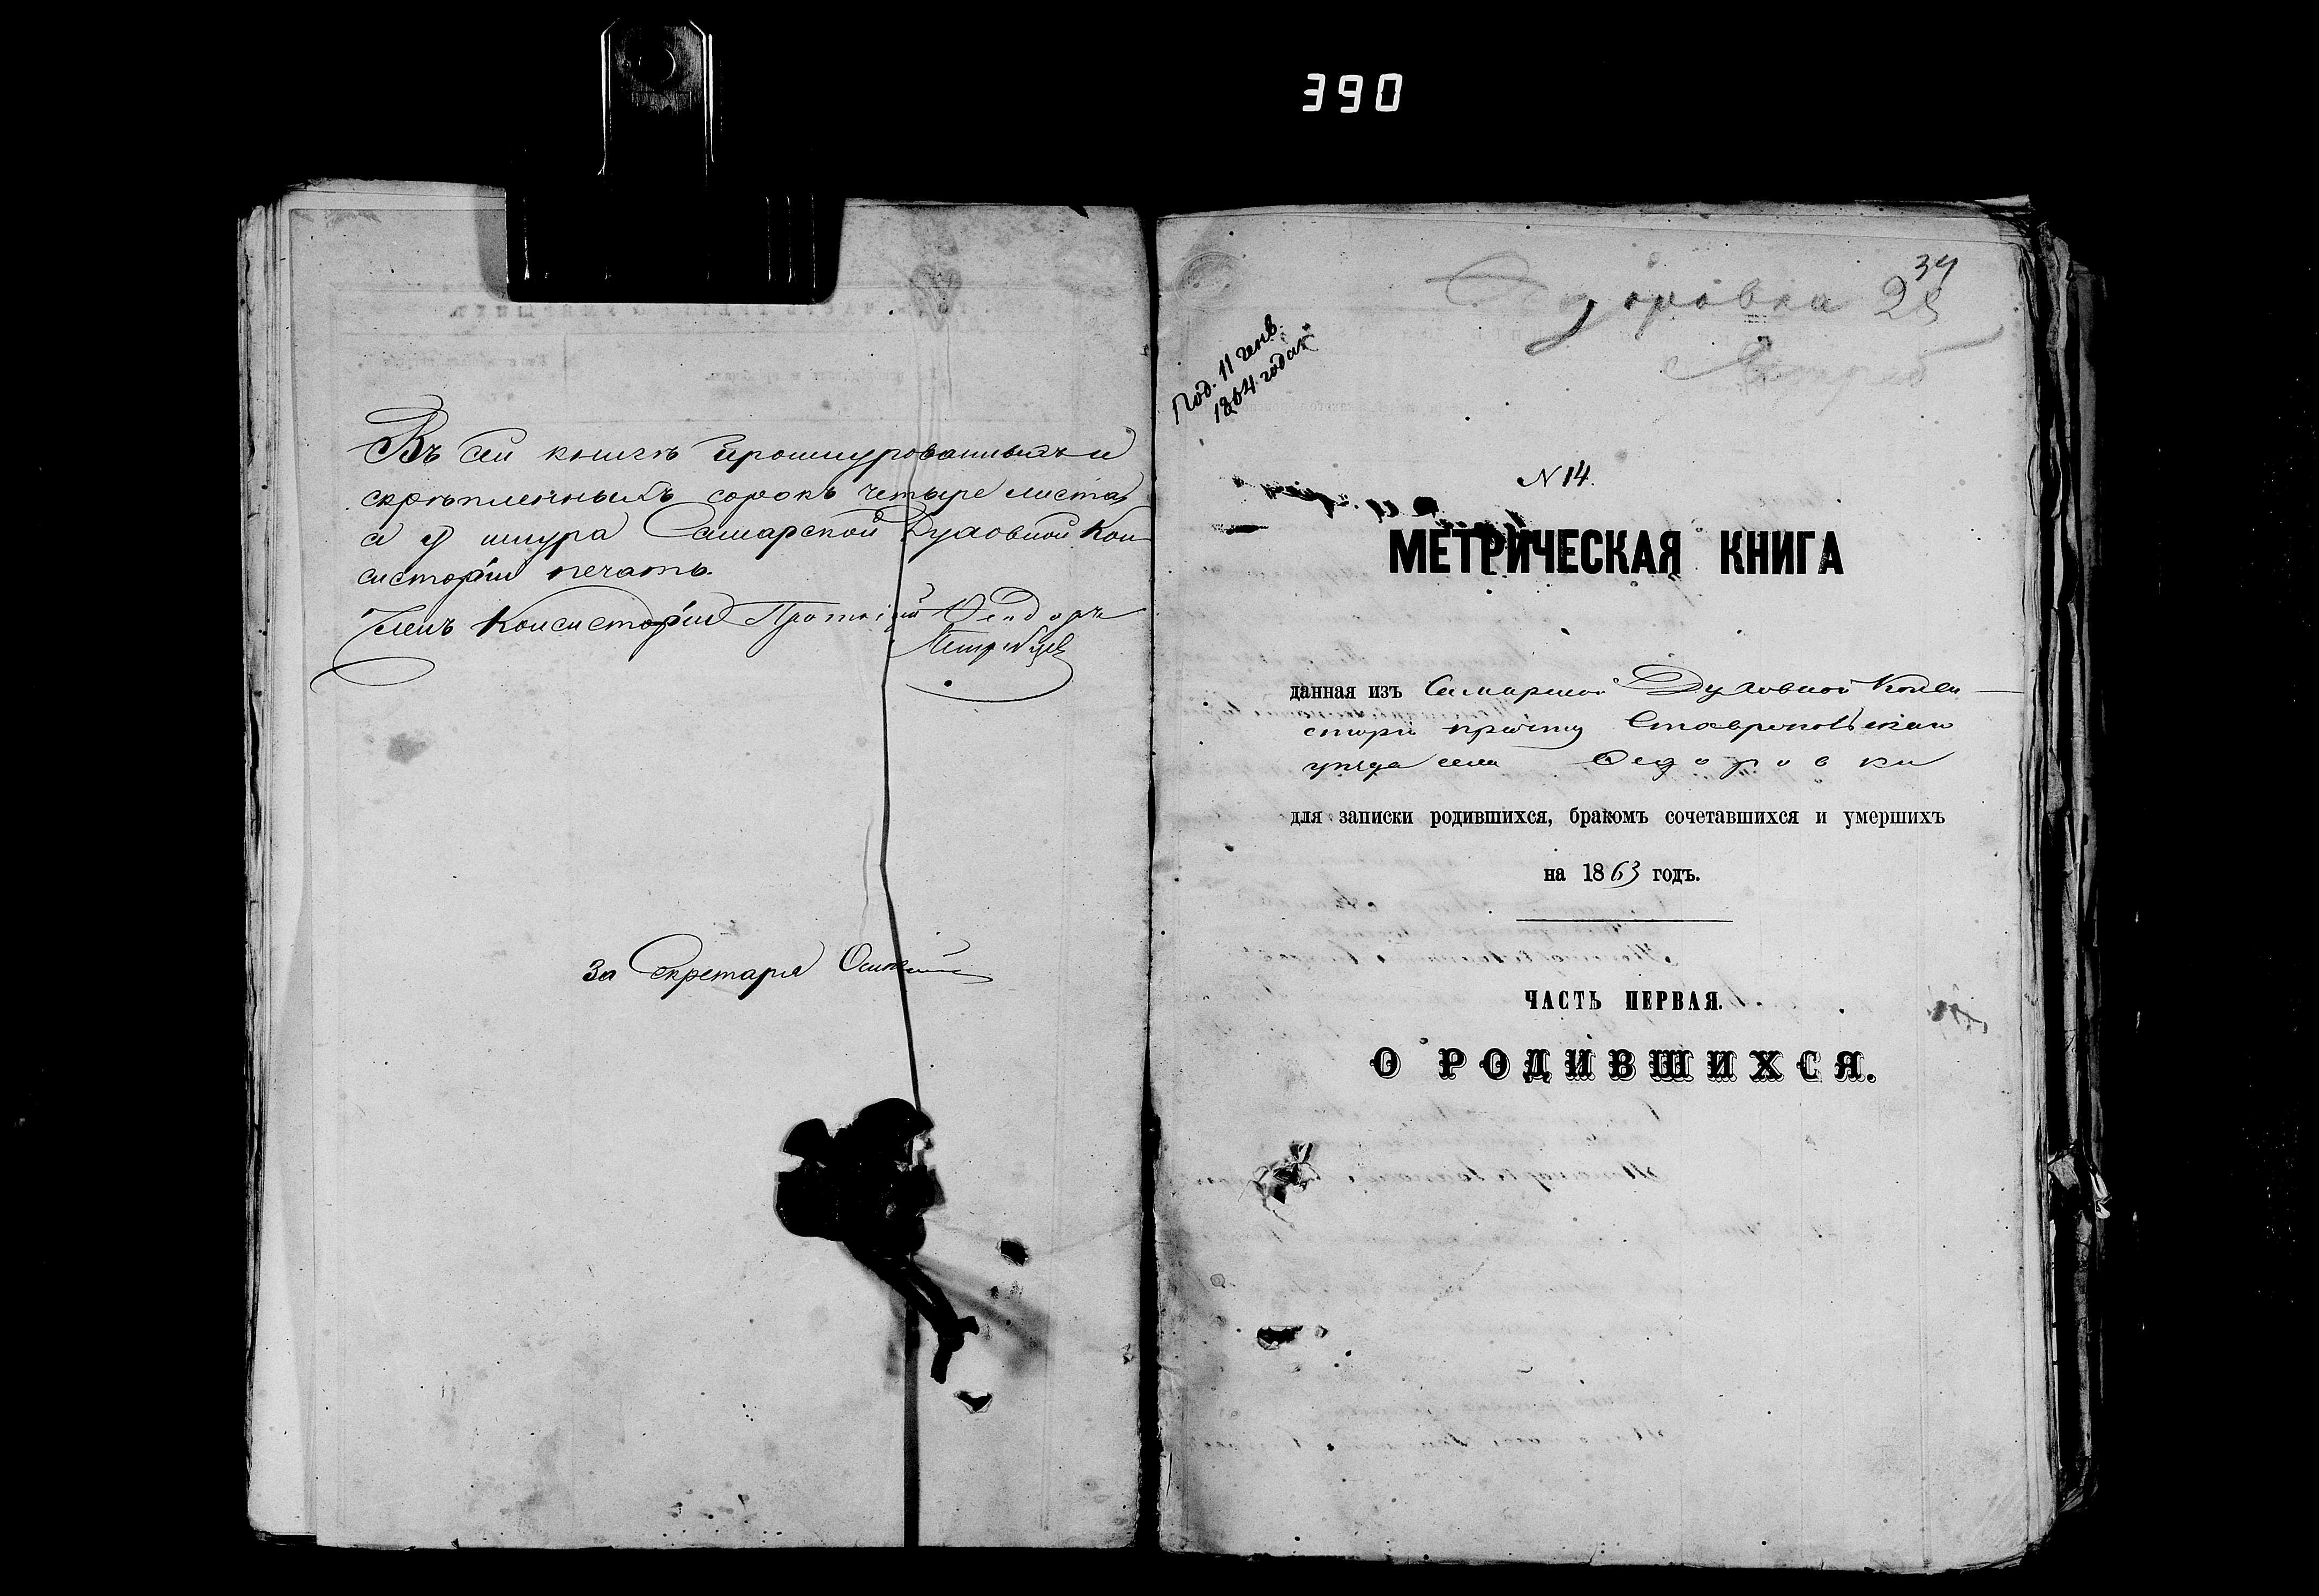 390
Въ сей книгѣ прошнурованныхъ и
скрѣпленныхъ сорокъ четыре листа,
а у шнура Самарской Духовной Кон-
систоріи печать.
Членъ Консисторіи Протоіерей Ѳеодоръ
За Секретаря
34
Ѳедоровка 28
Пол. 11 генв.
1864 года
N 14.
МЕТРИЧЕСКАЯ КНИГА
данная изъ Самарской Духовной Конси-
сторіи причту Ставропольскаго
уѣзда села Ѳедоровки
для записки родившихся, бракомъ сочетавшихся и умершихъ
на 1863 годъ.
ЧАСТЬ ПЕРВАЯ.
О РОДИВШИХСЯ.